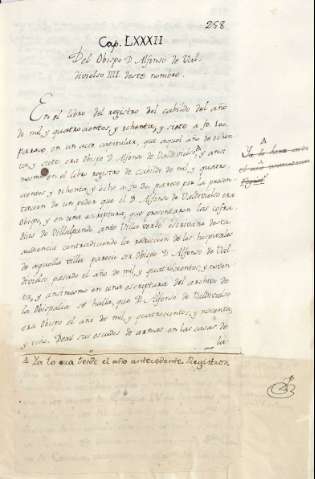 258
Cap. LXXXII
Del Obispo D. Alfonso de Val-
divielso IIII deste nombre.
En el libro del registro del cabildo del año
de mil, y quatrocientos, y ochenta, y siete a fo.
parece en un acto capitular, que aquel año de ochen-
ta, y siete era Obispo D. Alfonso de Valdivielso A, y ansi
mesmo en el libro registro de Cabildo de mil, y quatro-
cientos, y ochenta, y ocho a fo. parece por la presen-
tacion de un poder que el D. Alfonso de Valdivielso era
Obispo, y en una escriptura, que presentaron las cofra-
dias de Villalpando ante Villa verde escrivano desta
audiencia contradiciendo la reduccion de los hospitales
de aquella villa parece era Obispo D. Alfonso de Val-
divielso pasado el año de mil, y quatrocientos, y noven-
ta, y ansimismo en una escriptura del archivo de
la Obispalia se halla, que D. Alfonso de Valdivielso
era Obispo el año de mil, y quatrocientos, y noventa,
y seis. Dexó sus escudos de armas en las casas de
la
A
A Ya lo era desde el año antecedente. Registro